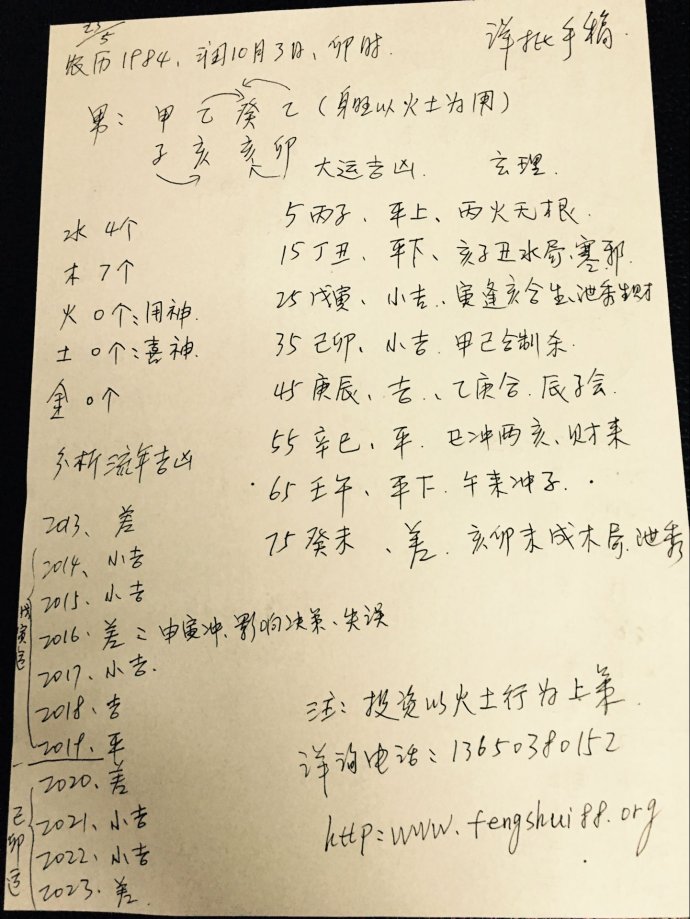 23/5
农历1984、闰10月3日、卯时. 详批手稿.
男: 甲 乙 癸 乙 (身旺以火土为用)
子 亥 亥 卯
大运吉凶. 玄理.
水 4个
木 7个
火 0个:用神.
土 0个:喜神.
金 0个
5 丙子、平上、丙火无根.
15 丁丑、平下、亥子丑水局、寒邪.
25 戊寅、小吉、寅逢亥合生、泄秀生财
35 己卯、小吉. 甲己合制杀.
45 庚辰、吉、乙庚合. 辰子会.
55 辛巳、平. 巳冲两亥、财来
65 壬午、平下. 午来冲子.
75 癸未、差. 亥卯未成木局.泄秀
分析流年吉凶
2013、差
2014、小吉
2015、小吉
2016、差:申寅冲、影响决策、失误
2017、小吉.
2018、吉
2019、平
2020、差
2021、小吉
2022、小吉
2023、差.
戊寅运
己卯运
注: 投资以火土行为上策.
详询电话:13650380152
http:www.fengshui88.org